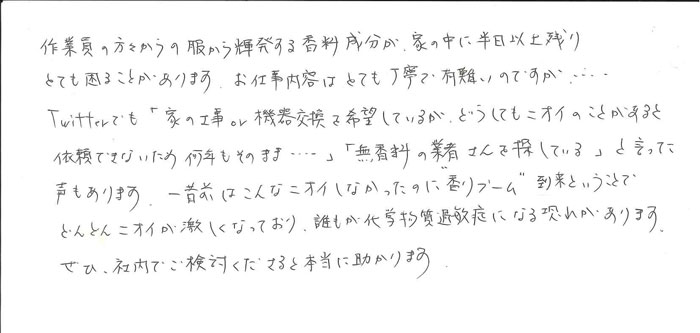 作業員の方々からの服から輝発する香料成分が、家の中に半日以上残り
とても困ることがあります。お仕事内容はとても丁寧で有難いのですが、‥‥
Twitterでも「家の工事or機器交換を希望しているが、どうしてもニオイのことがあると
依頼できないため何年もそのまま‥‥」「無香料の業者さんを探している」と言った
声もあります。一昔前はこんなニオイしなかったのに"香りブーム"到来ということで
どんどんニオイが激しくなっており、誰もが化学物質過敏症になる恐れがあります。
ぜひ、社内でご検討くださると本当に助かります。